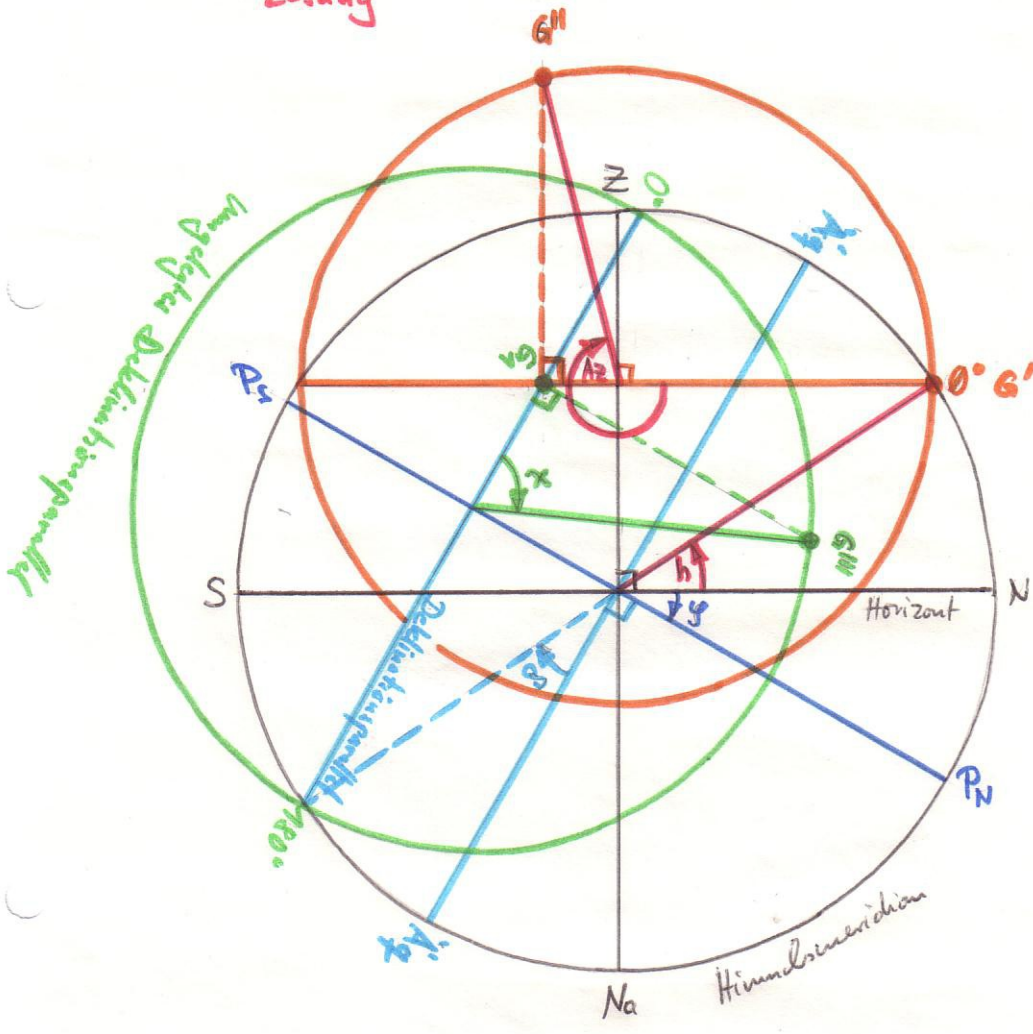 Lösung
G"
Z
0°
Äq.
umgelegter Deklinationsparallel
P_S
G_A
Az
0° G'
x
G'''
S
h
N
φ
Horizont
Deklinationsparallel
δ
P_N
180°
Äq.
Na
Himmelsmeridian